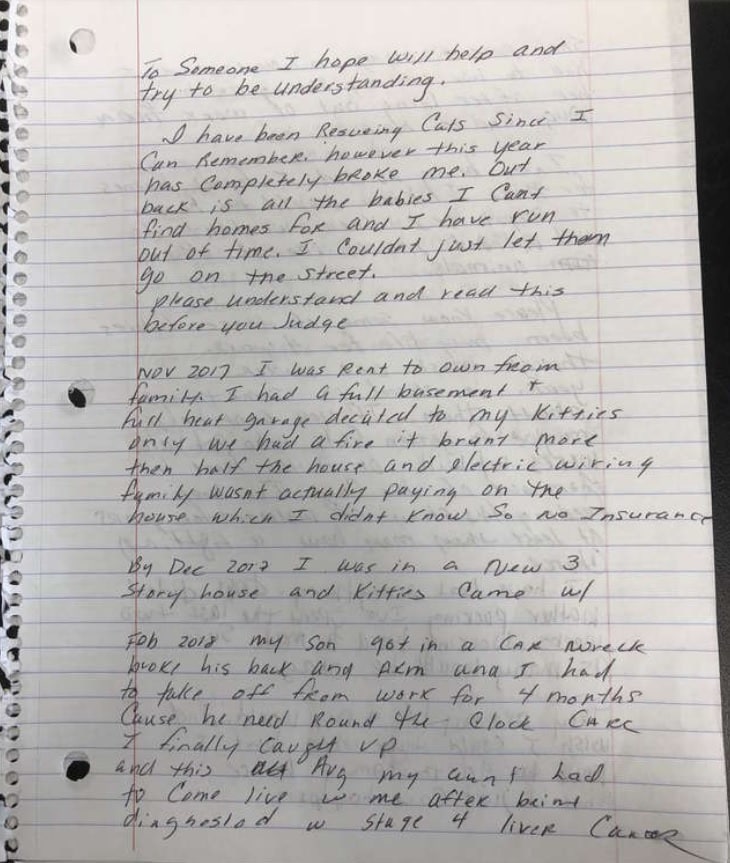 To Someone I hope will help and
try to be understanding.
I have been Rescueing Cats Since I
Can Remember. however this year
has Completely broke me. Out
back is all the babies I Cant
find homes for and I have run
out of time. I Couldnt just let them
go on the street.
please understand and read this
before you Judge
NOV 2017 I was Rent to own from
family. I had a full basement +
full heat garage decated to my Kitties
only we had a fire it brunt more
then half the house and electric wiring
family wasnt actually paying on the
house which I didnt know So No Insurance
By Dec 2017 I was in a New 3
Story house and Kitties Came w/
Feb 2018 my Son got in a CAR wreck
broke his back and ARM and I had
to take off from work for 4 months
Cause he need Round the - Clock CARE
I finally caught up
and this Aug my aunt had
to Come live w me after being
w Stage 4 liver Cancer